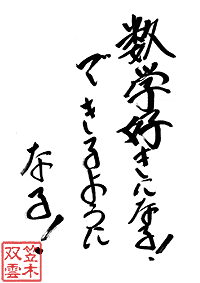 数学好きになる！
できるように
なる！
笠木
双雲